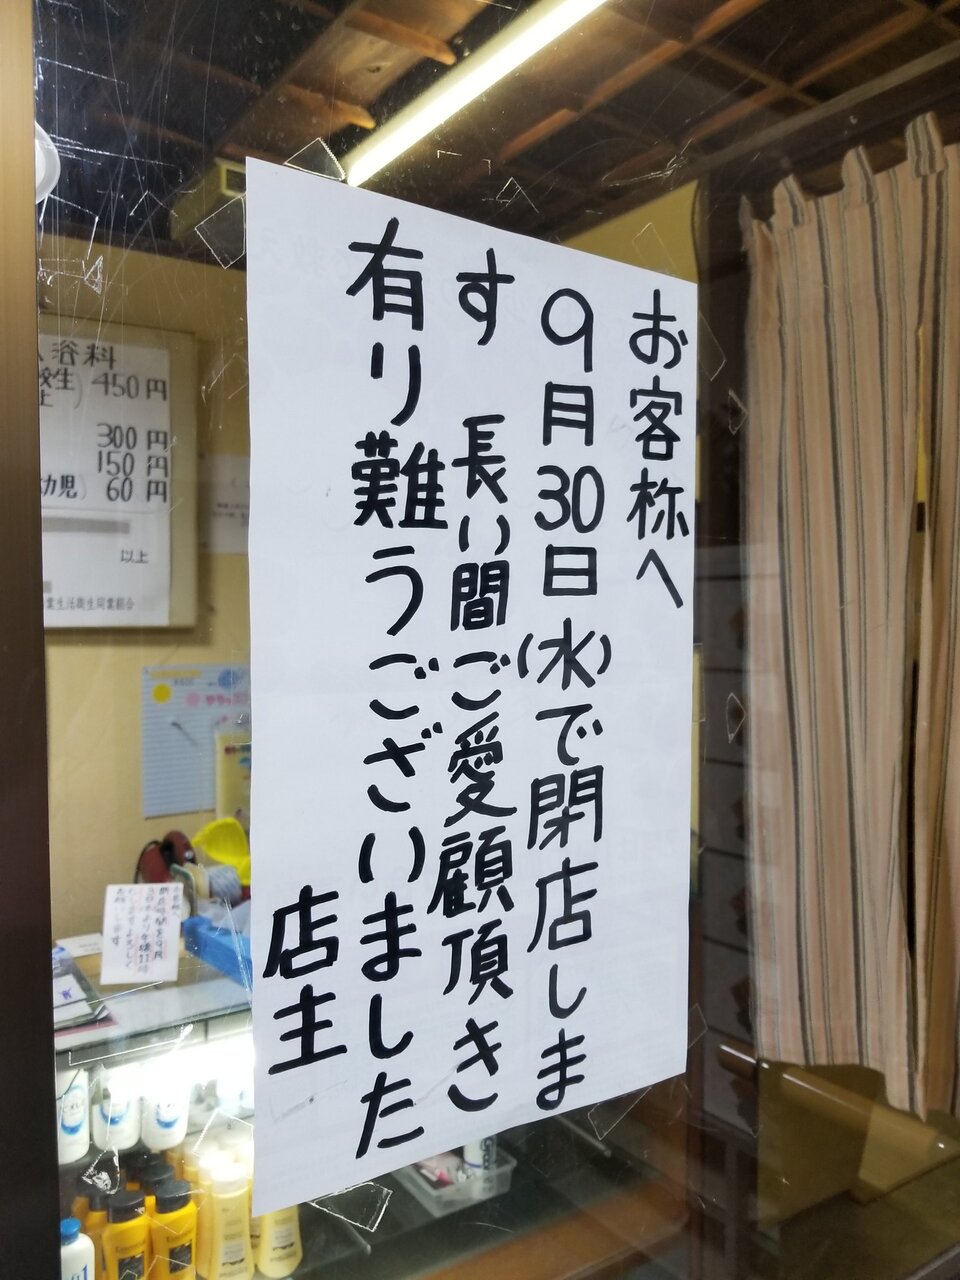 お客様へ
9月30日(水)で閉店しま
す 長い間ご愛顧頂き
有り難うございました
店主
入浴料
450円
300円
150円
幼児) 60円
以上
業生活衛生同業組合